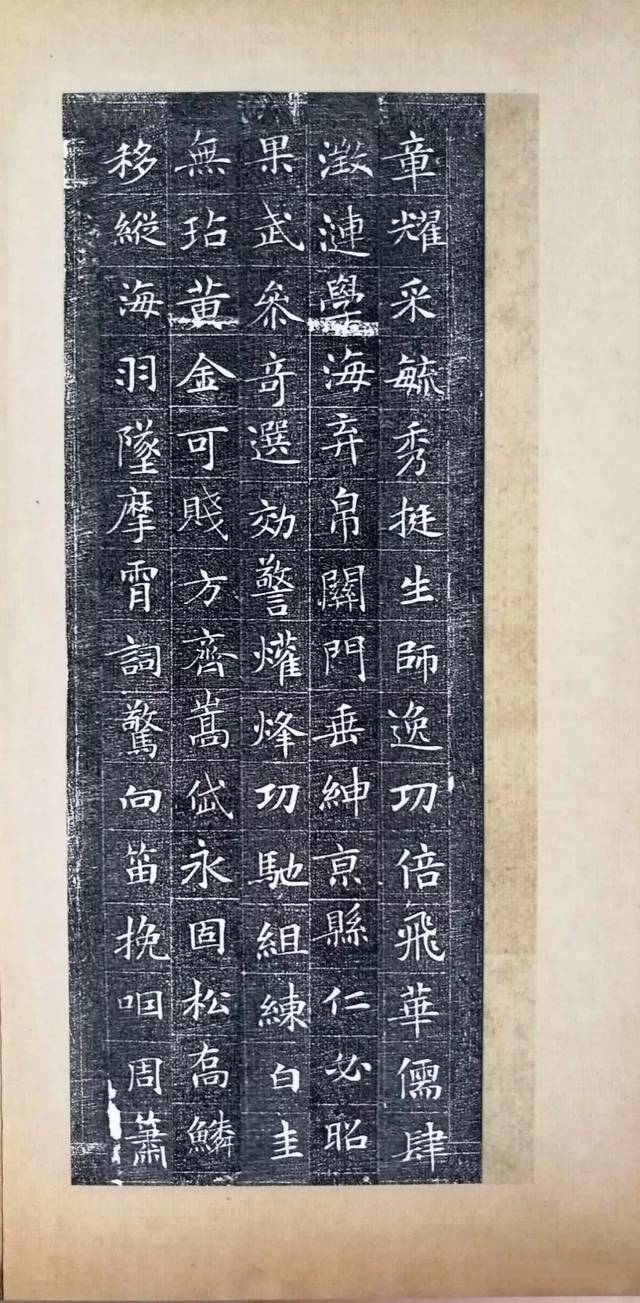 章耀采毓秀挺生師逸功倍飛華儒肆
澂漣學海弃帛關門垂紳京縣仁必昭
果武叅竒選効警爟烽功馳組練白圭
無玷黄金可賤方齊嵩岱永固松高鱗
移縱海羽墜摩霄詞驚向笛挽咽周簫